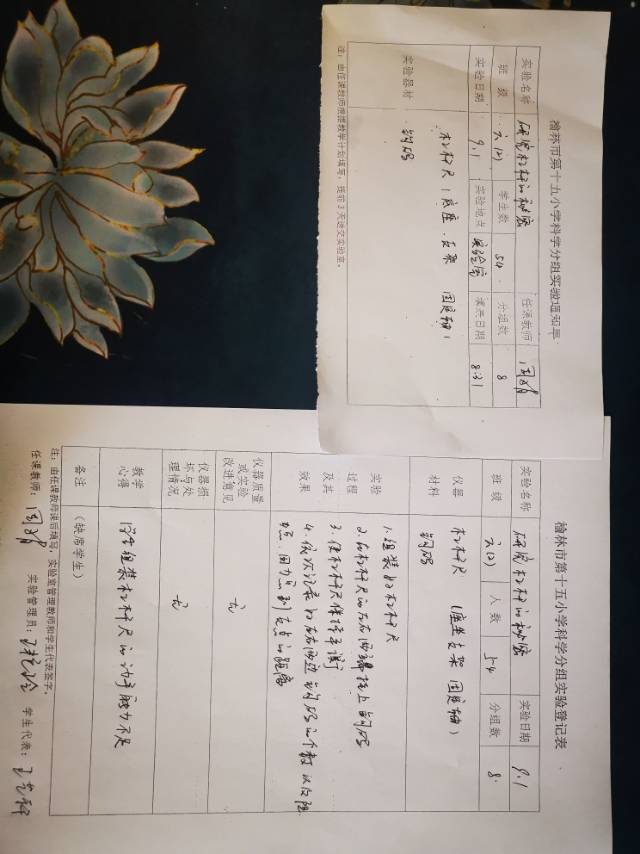 榆林市第十五小学科学分组实验通知单
实验名称 研究杠杆的秘密 任课教师
班级 六(2) 学生数 54 分组数 8
实验日期 9.1 实验地点 实验室 课表日期 8.31
实验器材 杠杆尺(底座、支架 固定轴)
钩码
注：由任课教师根据教学计划填写，提前3天送交实验室。
榆林市第十五小学科学分组实验登记表
实验名称 研究杠杆的秘密 实验日期 9.1
班级 六(2) 人数 54 分组数 8
仪器材料 杠杆尺(底座 支架 固定轴)
钩码
实验过程及其效果
1.组装好杠杆尺
2.在杠杆尺的左右两端挂上钩码
3.使杠杆尺保持平衡
4.依次记录好左右两边钩码的个数以及阻
点、用力点到支点的距离
仪器质量或实验改进意见 无
仪器损坏与处理情况 无
教学心得 学生组装杠杆尺的动手能力不足
备注 (缺席学生)
注：由任课教师课后填写，实验室管理教师和学生代表签字。
任课教师： 实验管理员： 学生代表：